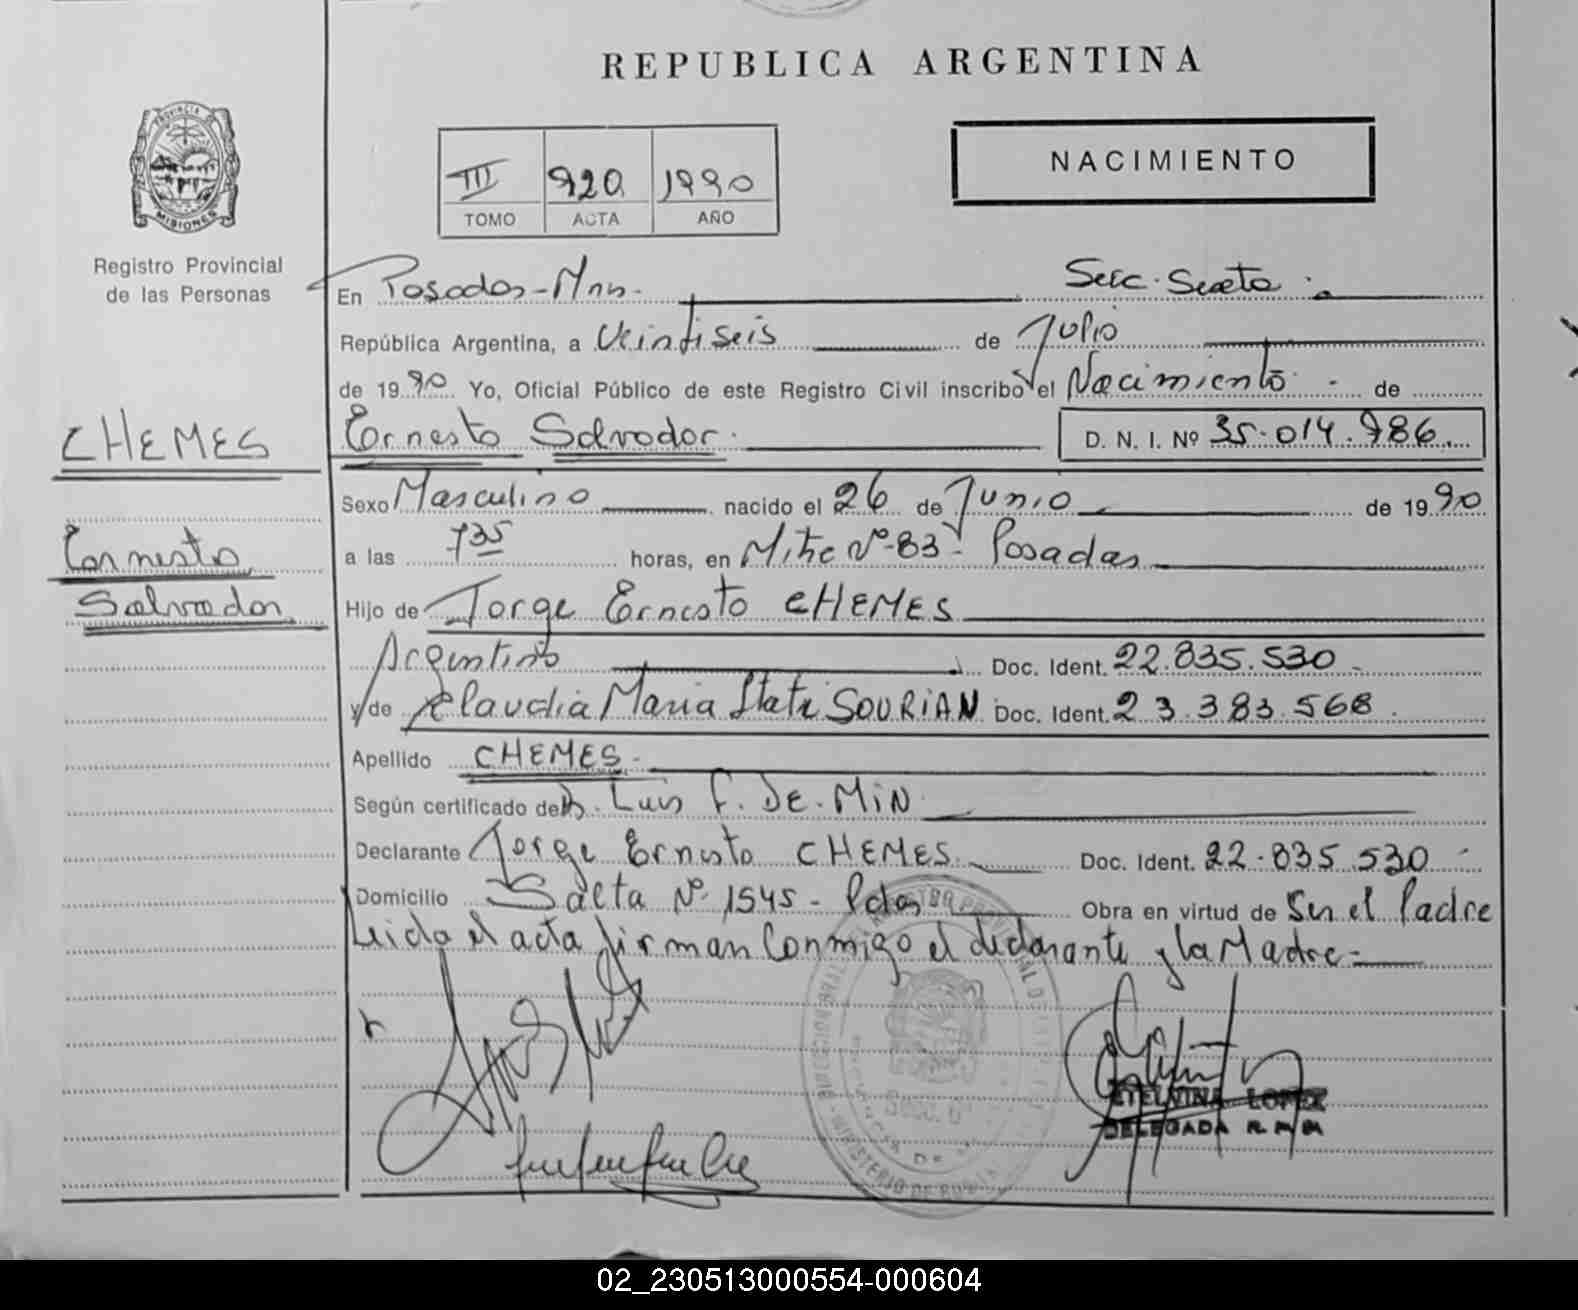 REPUBLICA ARGENTINA
PROVINCIA DE
MISIONES
Registro Provincial
de las Personas
III 920 1990
TOMO ACTA AÑO
NACIMIENTO
En Posadas-Mns. Secc. Sexta
República Argentina, a Veintiseis de Julio
de 1990 Yo, Oficial Público de este Registro Civil inscribo el Nacimiento de
CHEMES
Ernesto Salvador D. N. I. Nº 35.014.986
Sexo Masculino nacido el 26 de Junio de 1990
Ernesto
a las 735 horas, en Mitre Nº-83- Posadas
Salvador
Hijo de Jorge Ernesto CHEMES
Argentino Doc. Ident. 22.835.530
y/de Claudia Maria SOURIAN Doc. Ident. 23.383.568
Apellido CHEMES
Según certificado de Dr. Luis F. DE-MIN
Declarante Jorge Ernesto CHEMES Doc. Ident. 22.835.530
Domicilio Salta Nº 1545 - Pdas Obra en virtud de Ser el Padre
Leida el acta firman Conmigo el declarante y la Madre-
SECC. 6ª
MINISTERIO DE
ETELVINA LOPEZ
DELEGADA
02_230513000554-000604